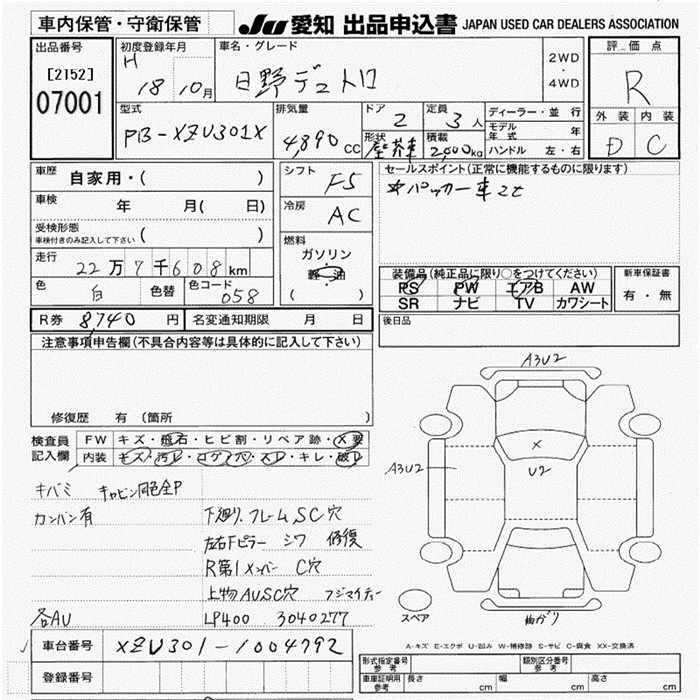 車内保管・守衛保管
JU 愛知 出品申込書 JAPAN USED CAR DEALERS ASSOCIATION
出品番号
[2152]
07001
初度登録年月
H 18 10月
車名・グレード
日野デュトロ
2WD
・
4WD
評価点
R
外装 内装
D C
型式
PB-XZU301X
排気量
4,890 cc
ドア
2
定員
3人
形状
塵芥車
積載
2,000kg
ディーラー・並行
モデル年式 年
ハンドル 左・右
車歴 自家用・( )
車検 年 月( 日)
受検形態
車検付きのみ記入して下さい ( )
走行 22万7千608km
色 白 色替 色コード 058
シフト
F5
冷房
AC
燃料
ガソリン
・
軽油
( )
セールスポイント(正常に機能するものに限ります)
*パッカー車2t
装備品(純正品に限り○をつけてください)
PS PW エアB AW
SR ナビ TV カワシート
新車保証書
有・無
R券 8,740円 名変通知期限 月 日
後日品
注意事項申告欄(不具合内容等は具体的に記入して下さい)
修復歴 有(箇所 )
検査員
記入欄
FW キズ・飛石・ヒビ割・リペア跡・X要
内装 キズ・汚レ・コゲ・穴・スレ・キレ・破レ
キバミ キャビン同色全P
カンバン有
下廻り、フレームSC穴
左右Fピラー シワ 修復
R第1メンバー C穴
上物AUSC穴 フジマイティー
各AU LP400 3040277
車台番号 XZU301-1004792
登録番号
A3U2
A3U2
X
U2
曲がり
スペア
A-キズ E-エクボ U-凹み W-補修跡 S-サビ C-腐食 XX-交換済
形式指定番号
参考
類別区分番号
参考
車庫証明用
参考
長さ cm 幅 cm 高さ cm